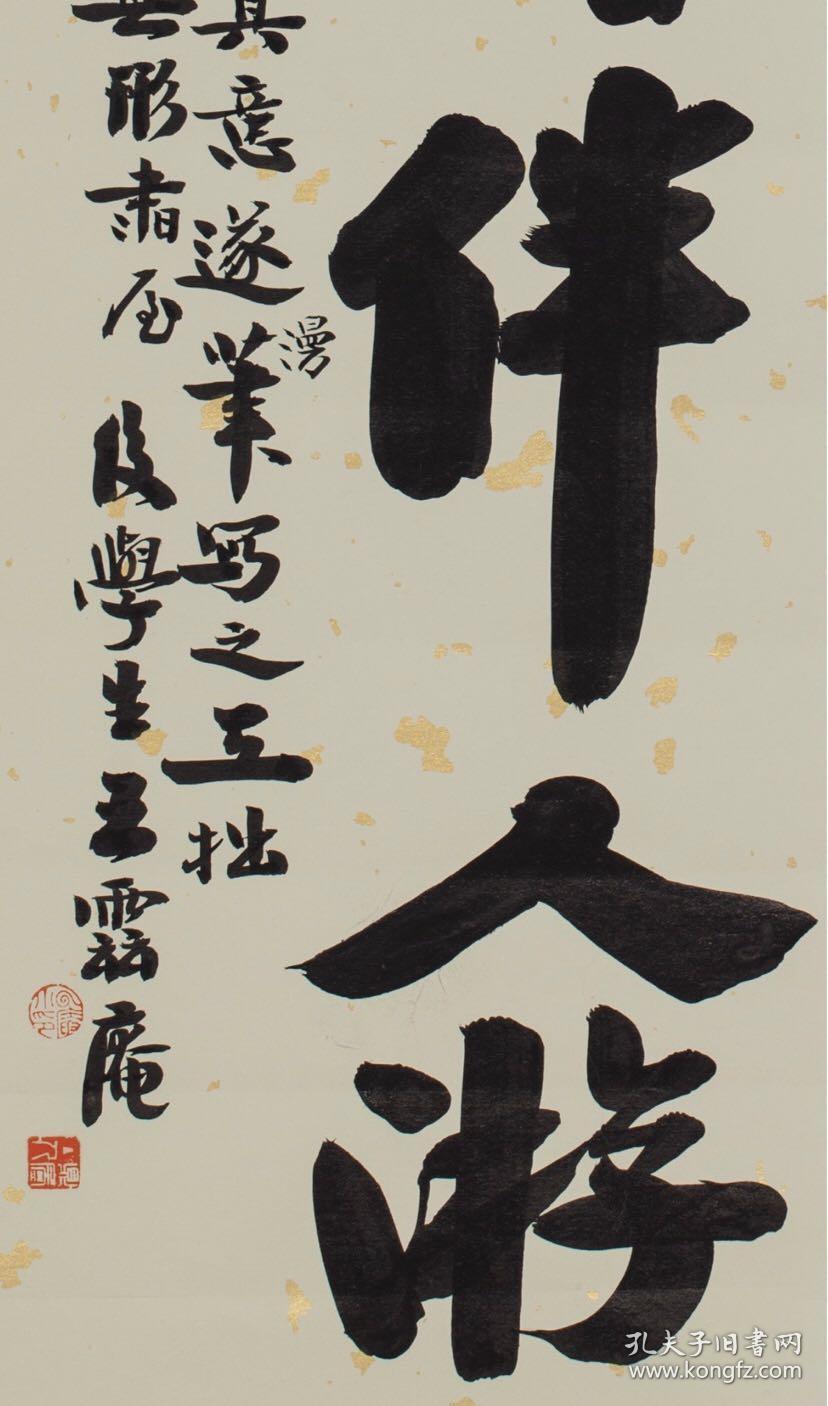 伴人游
真意遂筆寫之工拙
漫
無形書屋 後學生王霖庵
孔夫子旧书网
www.kongfz.com